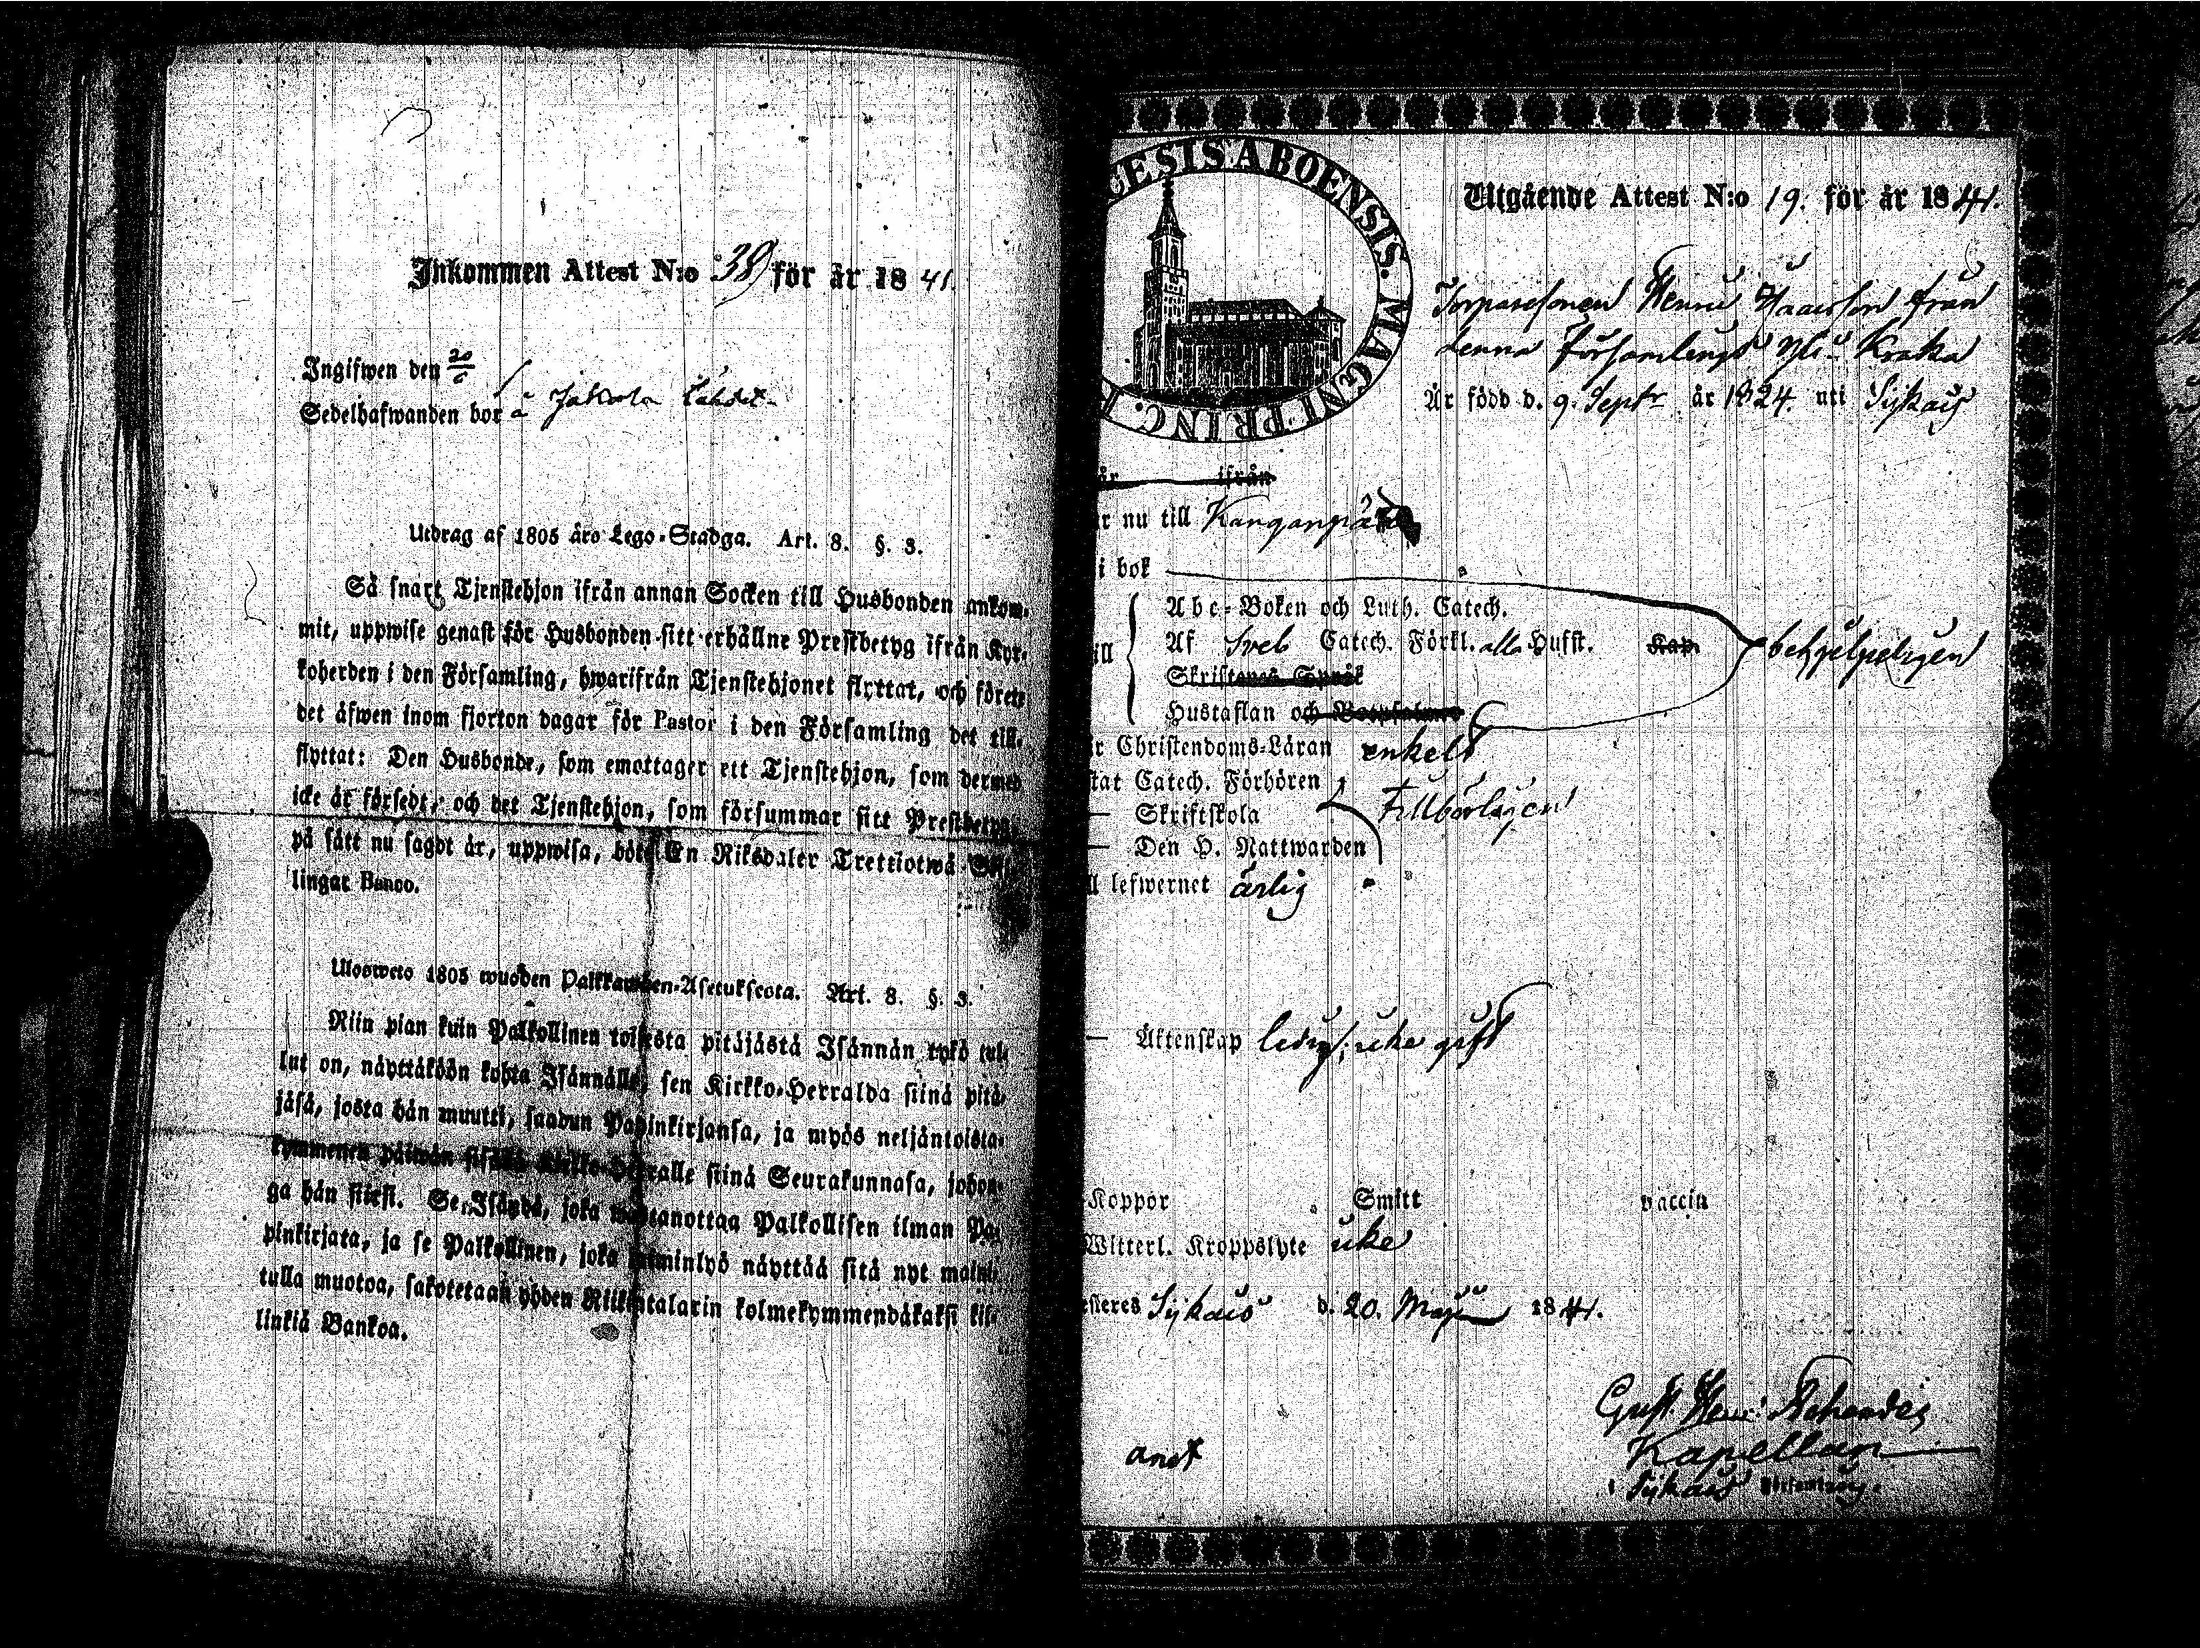 Inkommen Attest N:o 38 för år 1841.
Ingifwen den 20/6
Sedelhafwanden bor å Jakola
Utdrag af 1805 års Lego-Stadga. Art. 8. §. 3.
Så snart Tjenstehjon ifrån annan Socken till Husbonden ankom-
mit, uppwise genast för Husbonden sitt erhållne Prestbetyg ifrån Kyr-
koherden i den Församling, hwarifrån Tjenstehjonet flyttat, och förete
det äfwen inom fjorton dagar för Pastor i den Församling det till-
flyttat: Den Husbonde, som emottager ett Tjenstehjon, som dermed
icke är försedt, och det Tjenstehjon, som försummar sitt Prestbetyg,
på sätt nu sagdt är, uppwisa, böte En Riksdaler Trettiotwå Skil-
lingar Banco.
Uloswets 1805 wuoden Palkkawäen-Asetuksesta. Art. 8. §. 3.
Niin pian kuin Palkollinen toisesta pitäjästä Isännän tykö tul-
lut on, näyttäköön kohta Isännälle, sen Kirkko-Herralda siinä pitä-
jäsä, josta hän muutti, saadun Papinkirjansa, ja myös neljäntoista-
kymmenen päiwän sisällä Kirkko-Herralle siinä Seurakunnasa, johon-
ga hän siirsi. Se Isändä, joka wastanottaa Palkollisen ilman Pa-
pinkirjata, ja se Palkollinen, joka laiminlyö näyttää sitä nyt maini-
tulla muotoa, sakotetaan yhden Riikintalarin kolmekymmendäkaksi kil-
linkiä Bankoa.
CESIS ABOENSIS. MAGNI PRINC.
Utgående Attest N:o 19. för år 1841.
Torparesonen Henric från
denna Församlings
Är född d. 9. Septr. år 1824. uti Sijkais
år ifrån
r nu till Kanganpää
i bok
Abc-Boken och Luth. Catech.
ill Af Sveb Catech. Förkl. alla Hufst. Kap. behjelpeligen
Skriftenes Språk
Hustaflan och Botpsalmer
r Christendoms-Läran enkelt
tat Catech. Förhören
— Skriftskola Tillbörligen
— Den H. Nattwarden
ll lefwernet ärlig
— Äktenskap ledig; icke gift
Koppor Smitt vaccin
Witterl. Kroppslyte icke
esteres Sijkais d. 20. Maji 1841.
Gust. Henr.
Kapellan
i Sijkais Församling.